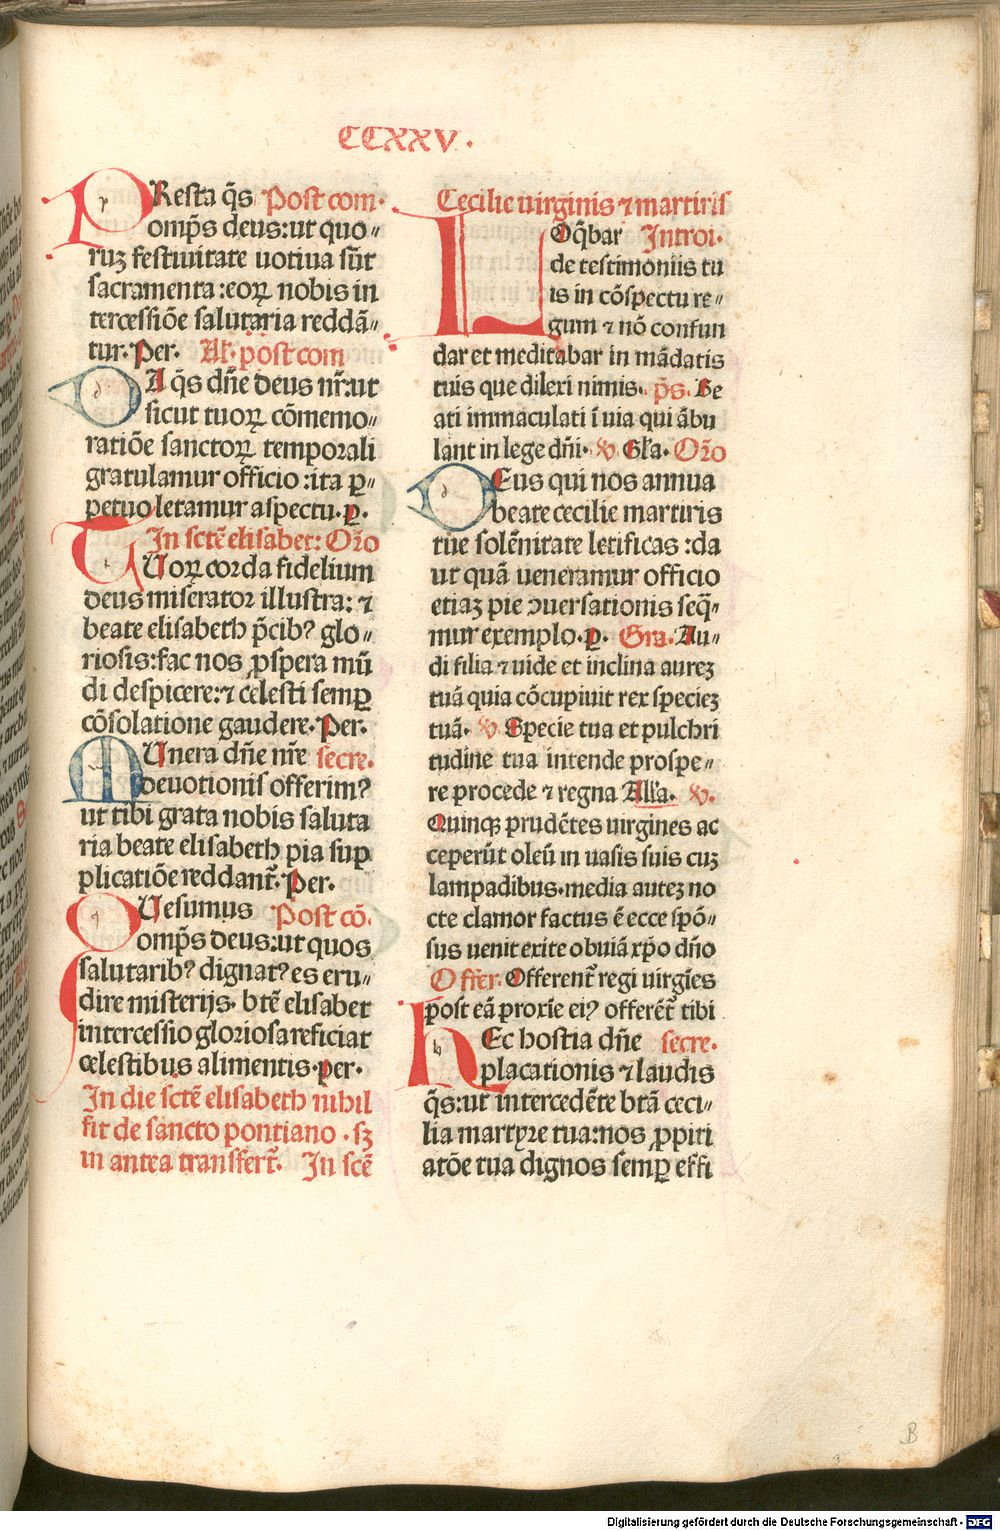 CCXXV.
PResta q̄s Post com.
omp̄s deus:ut quo〃
ruꝫ festiuitate uotiua sūt
sacramenta:eoꝝ nobis in
tercessiōe salutaria reddā〃
tur. Per. Al. post com
DA q̄s dn̄e deus nr̄:ut
sicut tuoꝝ cōmemo〃
ratiōe sanctoꝝ temporali
gratulamur officio :ita ꝑ〃
petuo letamur aspectu. ꝑ.
In sctē elisabet: Oꝛ̄o
TUoꝝ corda fidelium
deus miserator illustra: ⁊
beate elisabeth p̄cibꝰ glo〃
riosis:fac nos ꝓspera mū
di despicere:⁊ celesti semꝑ
cōsolatione gaudere. Per.
MUnera dn̄e nr̄e secre.
deuotionis offerimꝰ
ut tibi grata nobis saluta
ria beate elisabeth pia sup
plicatiōe reddant̄. Per.
QUesumus Post cō.
omp̄s deus:ut quos
salutaribꝰ dignatꝰ es eru〃
dire misterijs. btē elisabet
intercessio gloriosa reficiat
celestibus alimentis. per.
In die sctē elisabeth nihil
fit de sancto pontiano . sꝫ
in antea transfert̄. In scē
Cecilie uirginis ⁊ martiris
LOq̄bar Introi.
de testimoniis tu
is in cōspectu re〃
gum ⁊ nō confun
dar et meditabar in mādatis
tuis que dilexi nimis. p̄s. Be
ati immaculati ī uia qui ābu
lant in lege dn̄i. ℣ Gl̄a. Oꝛ̄o
DEus qui nos annua
beate cecilie martiris
tue solēnitate letificas :da
ut quā ueneramur officio
etiaꝫ pie ↄuersationis seq̄〃
mur exemplo. ꝑ. Gra. Au〃
di filia ⁊ uide et inclina aureꝫ
tuā quia cōcupiuit rex specieꝫ
tuā. ℣ Specie tua et pulchri
tudine tua intende prospe〃
re procede ⁊ regna All̄a. ℣.
Quinqꝫ prudētes uirgines ac
ceperūt oleū in uasis suis cuꝫ
lampadibus. media auteꝫ no
cte clamor factus ē ecce spō〃
sus uenit exite obuiā xp̄o dn̄o
Offer. Offerent̄ regi uirgīes
post eā proxīe eiꝰ offerēt̄ tibi
HEc hostia dn̄e secre.
placationis ⁊ laudis
q̄s:ut intercedēte btā ceci〃
lia martyre tua:nos ꝓpiti
atōe tua dignos semꝑ effi
B
Digitalisierung gefördert durch die Deutsche Forschungsgemeinschaft - DFG